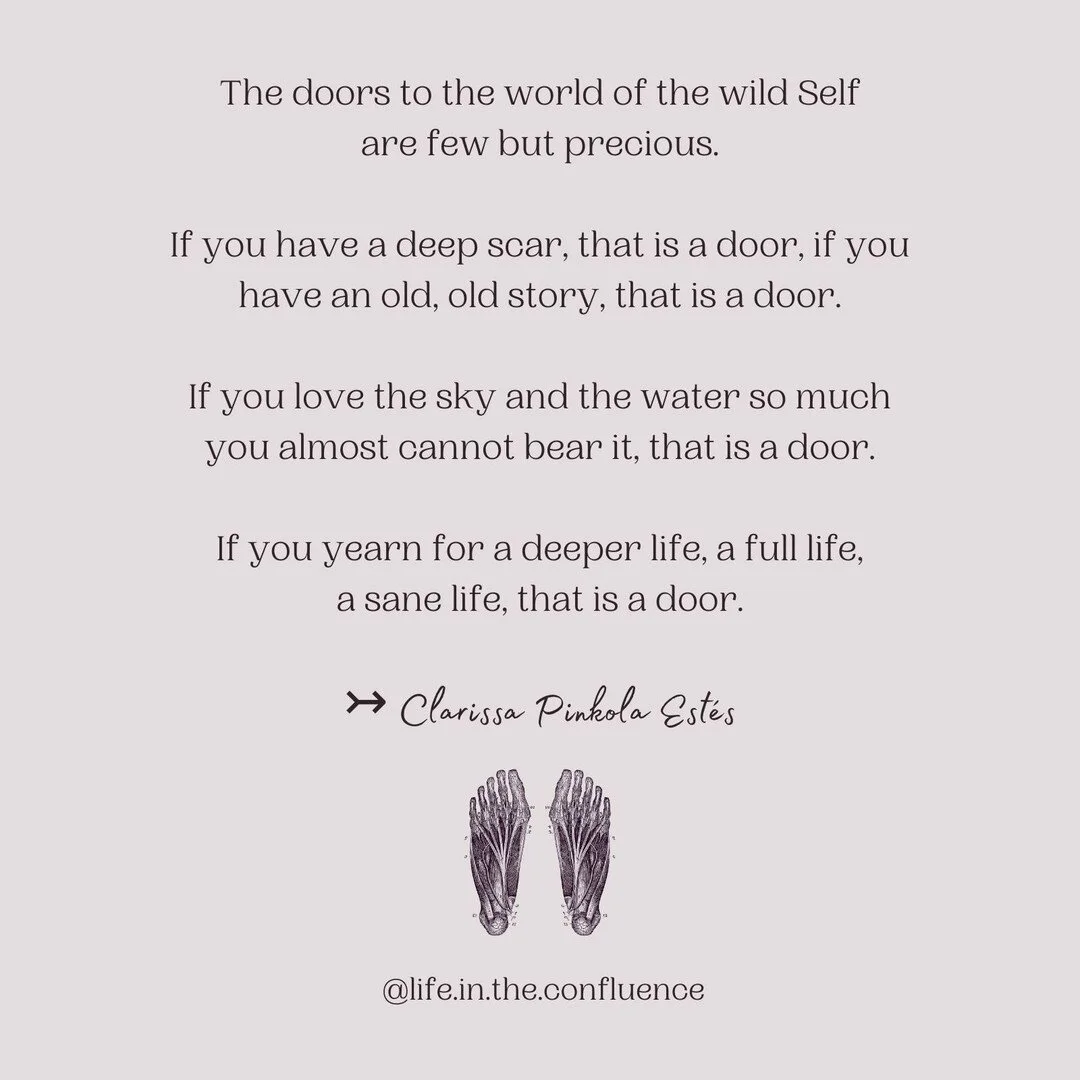 The doors to the world of the wild Self
are few but precious.
If you have a deep scar, that is a door, if you
have an old, old story, that is a door.
If you love the sky and the water so much
you almost cannot bear it, that is a door.
If you yearn for a deeper life, a full life,
a sane life, that is a door.
↣ Clarissa Pinkola Estés
@life.in.the.confluence